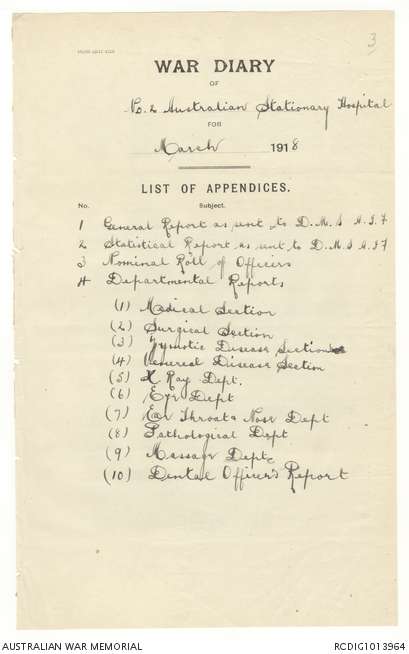 3
WAR DIARY
OF
No. 2 Australian Stationary Hospital
FOR
March 1918
LIST OF APPENDICES.
No. Subject.
1 General Report as sent to D.M.S A.I.F
2 Statistical Report as sent to D.M.S A.I.F
3 Nominal Roll of Officers
4 Departmental Reports
(1) Medical Section
(2) Surgical Section
(3) Zymotic Disease Section
(4) Venereal Disease Section
(5) X Ray Dept.
(6) Eye Dept
(7) Ear Throat & Nose Dept
(8) Pathological Dept
(9) Massage Dept
(10) Dental Officer's Report
AUSTRALIAN WAR MEMORIAL RCDIG1013964